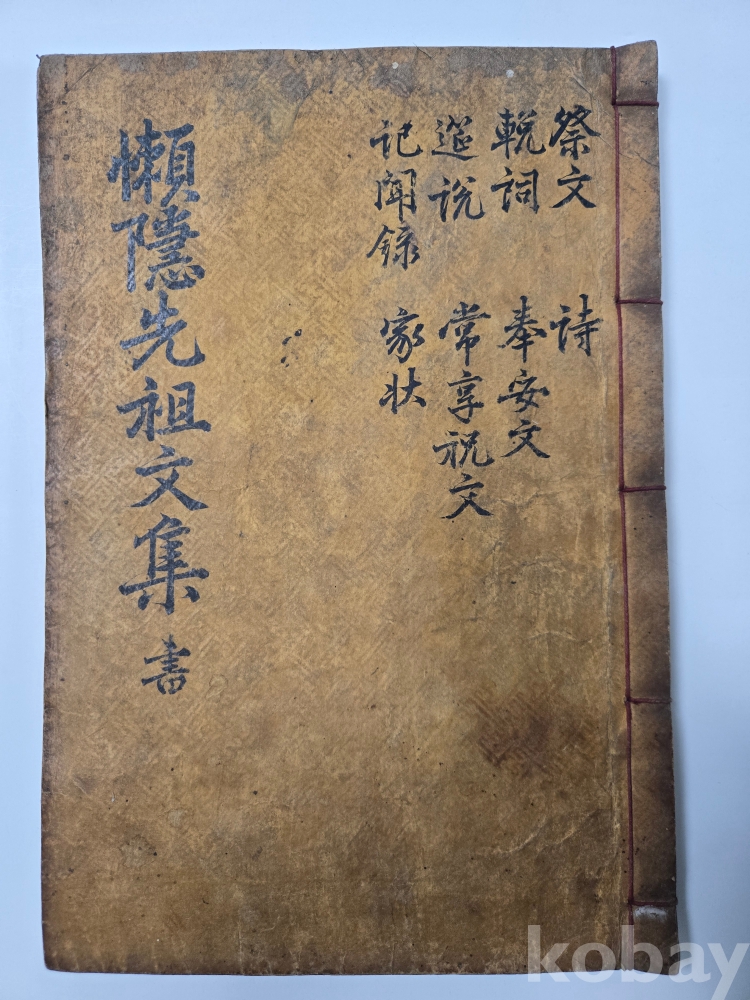 祭文 詩
輓詞 奉安文
筵說 常享祝文
記聞錄 家狀
懶隱先祖文集 書
kobay